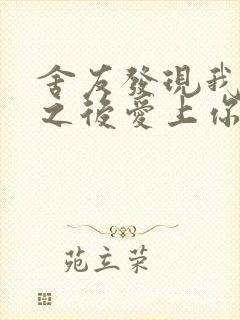 舍友發現我
之後愛上你
苑立荣